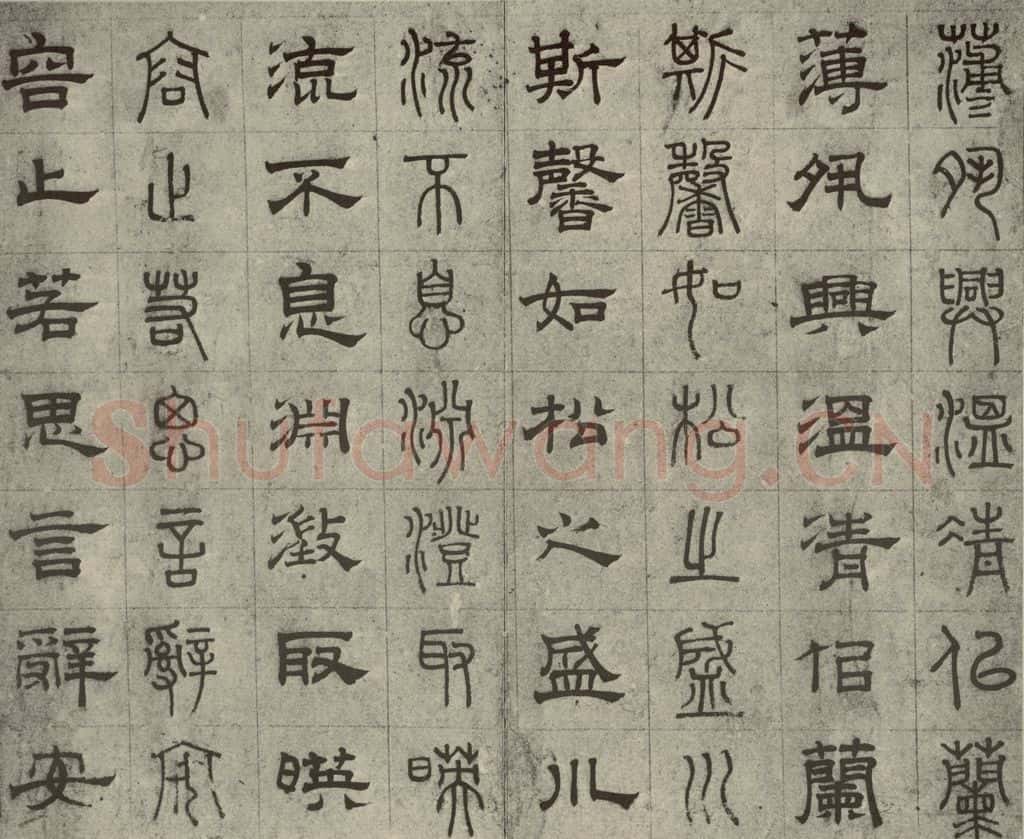 薄夙興溫凊佀蘭
薄夙興溫清佀蘭
斯馨如松之盛川
斯馨如松之盛川
流不息淵澄取暎
流不息淵澂取暎
容止若思言辭安
容止若思言辭安
Shufawang.CN